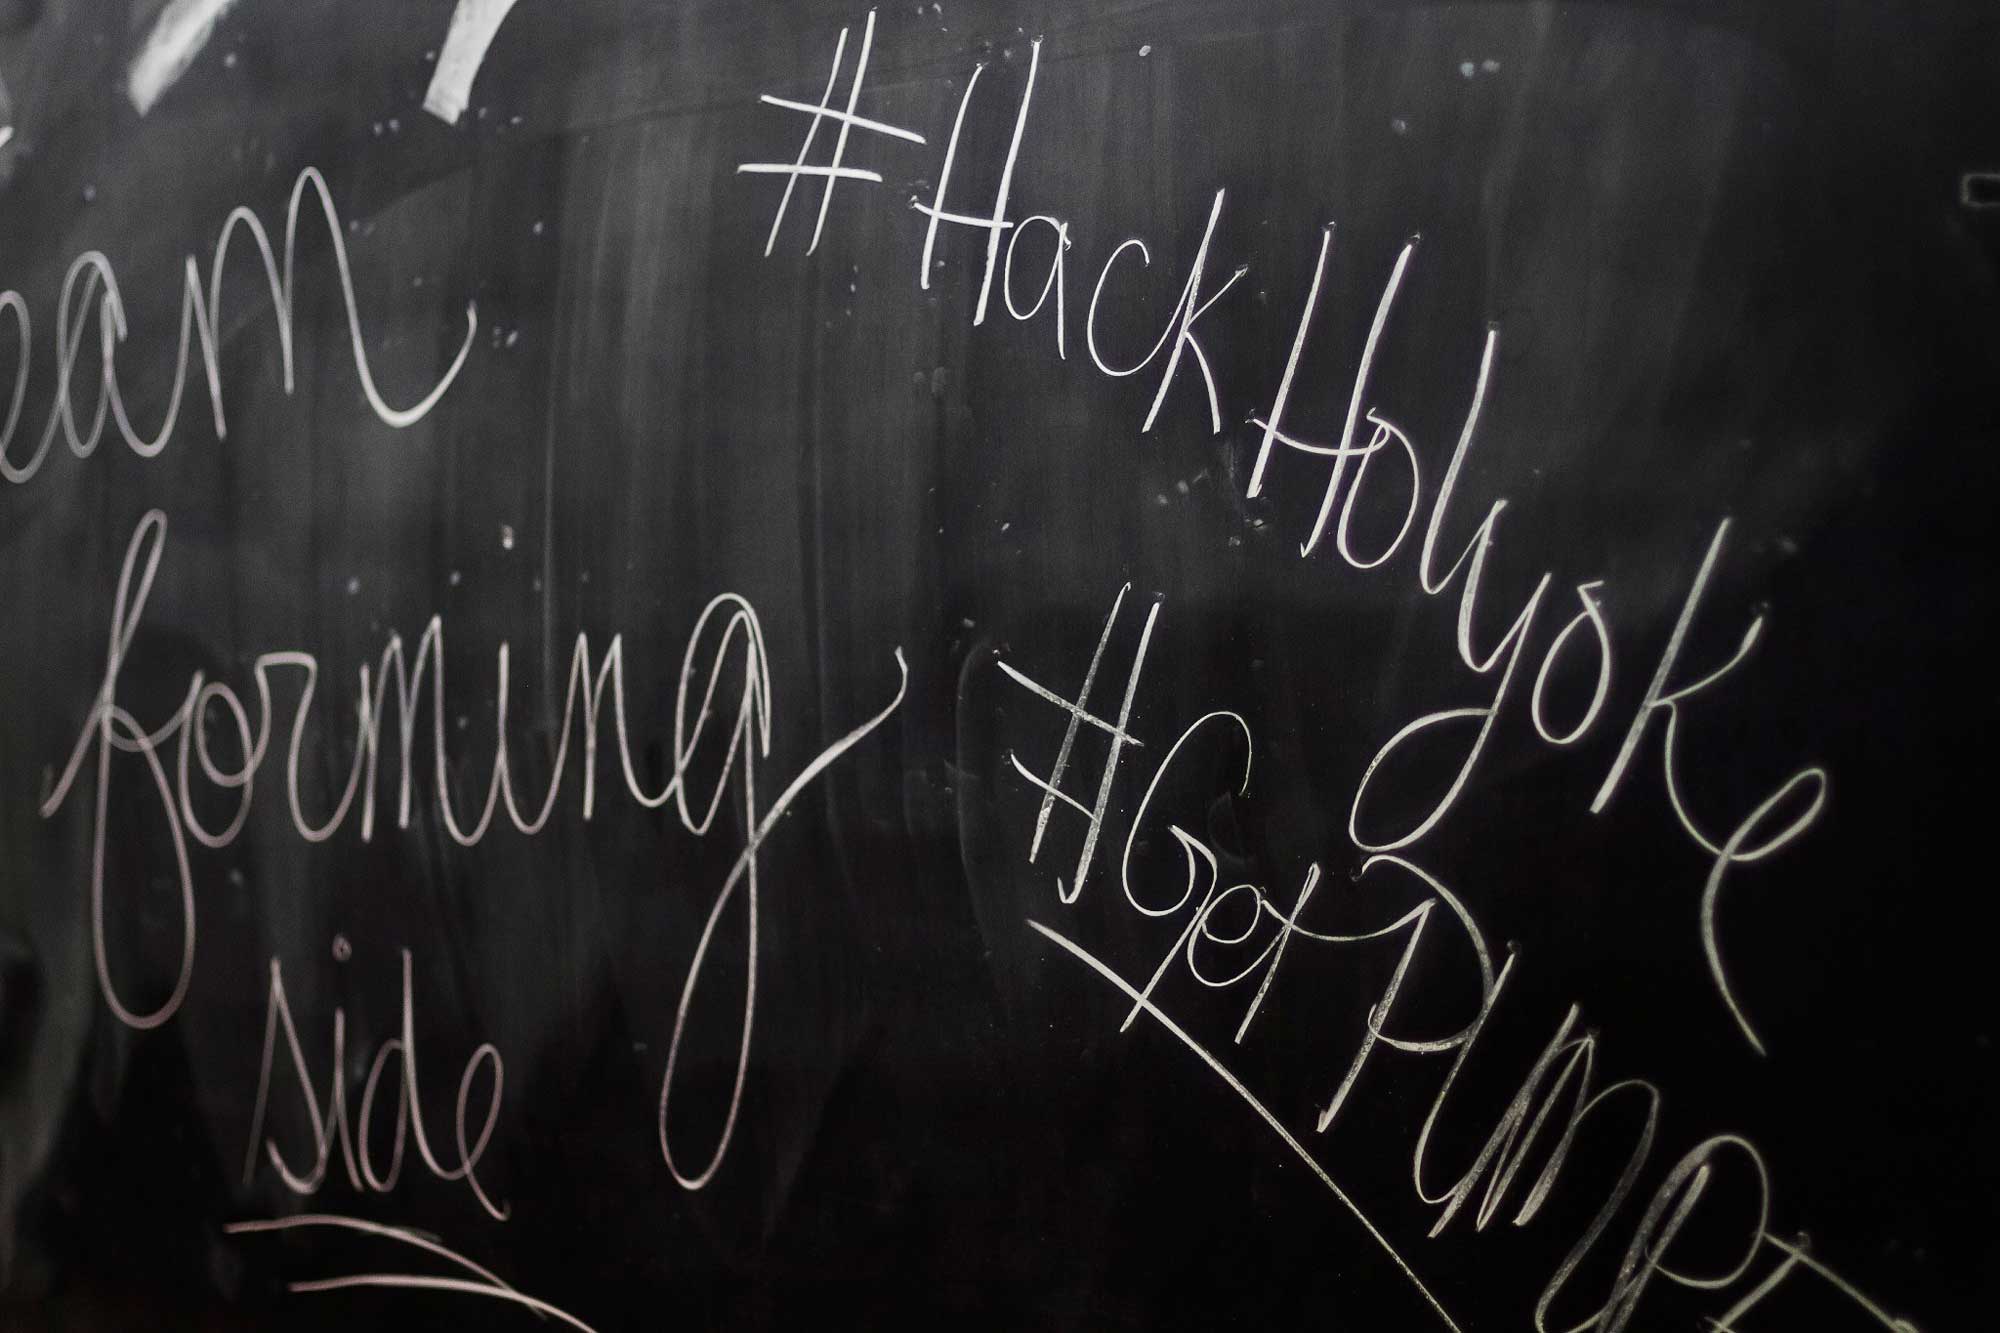 eam
forming
side
#HackHolyoke
#GetPUMPT